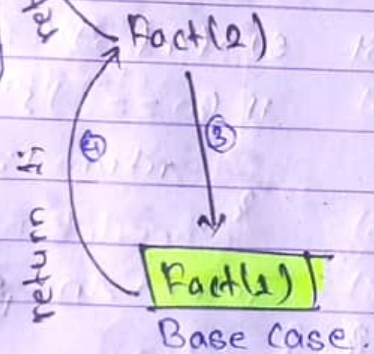 ret
Fact(2)
③
④
return 1;
Fact(1)
Base case.